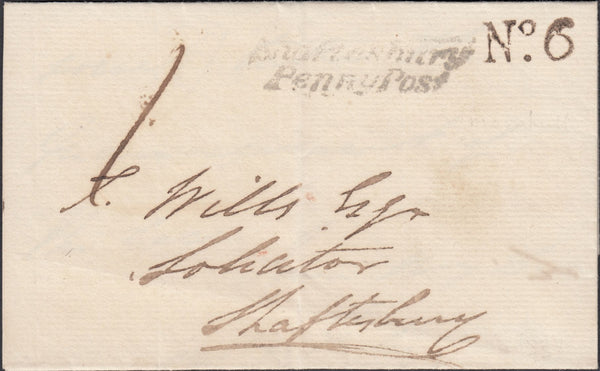 Shaftesbury
Penny Post
No. 6
1
Wills Esqr
Solicitor
Shaftesbury